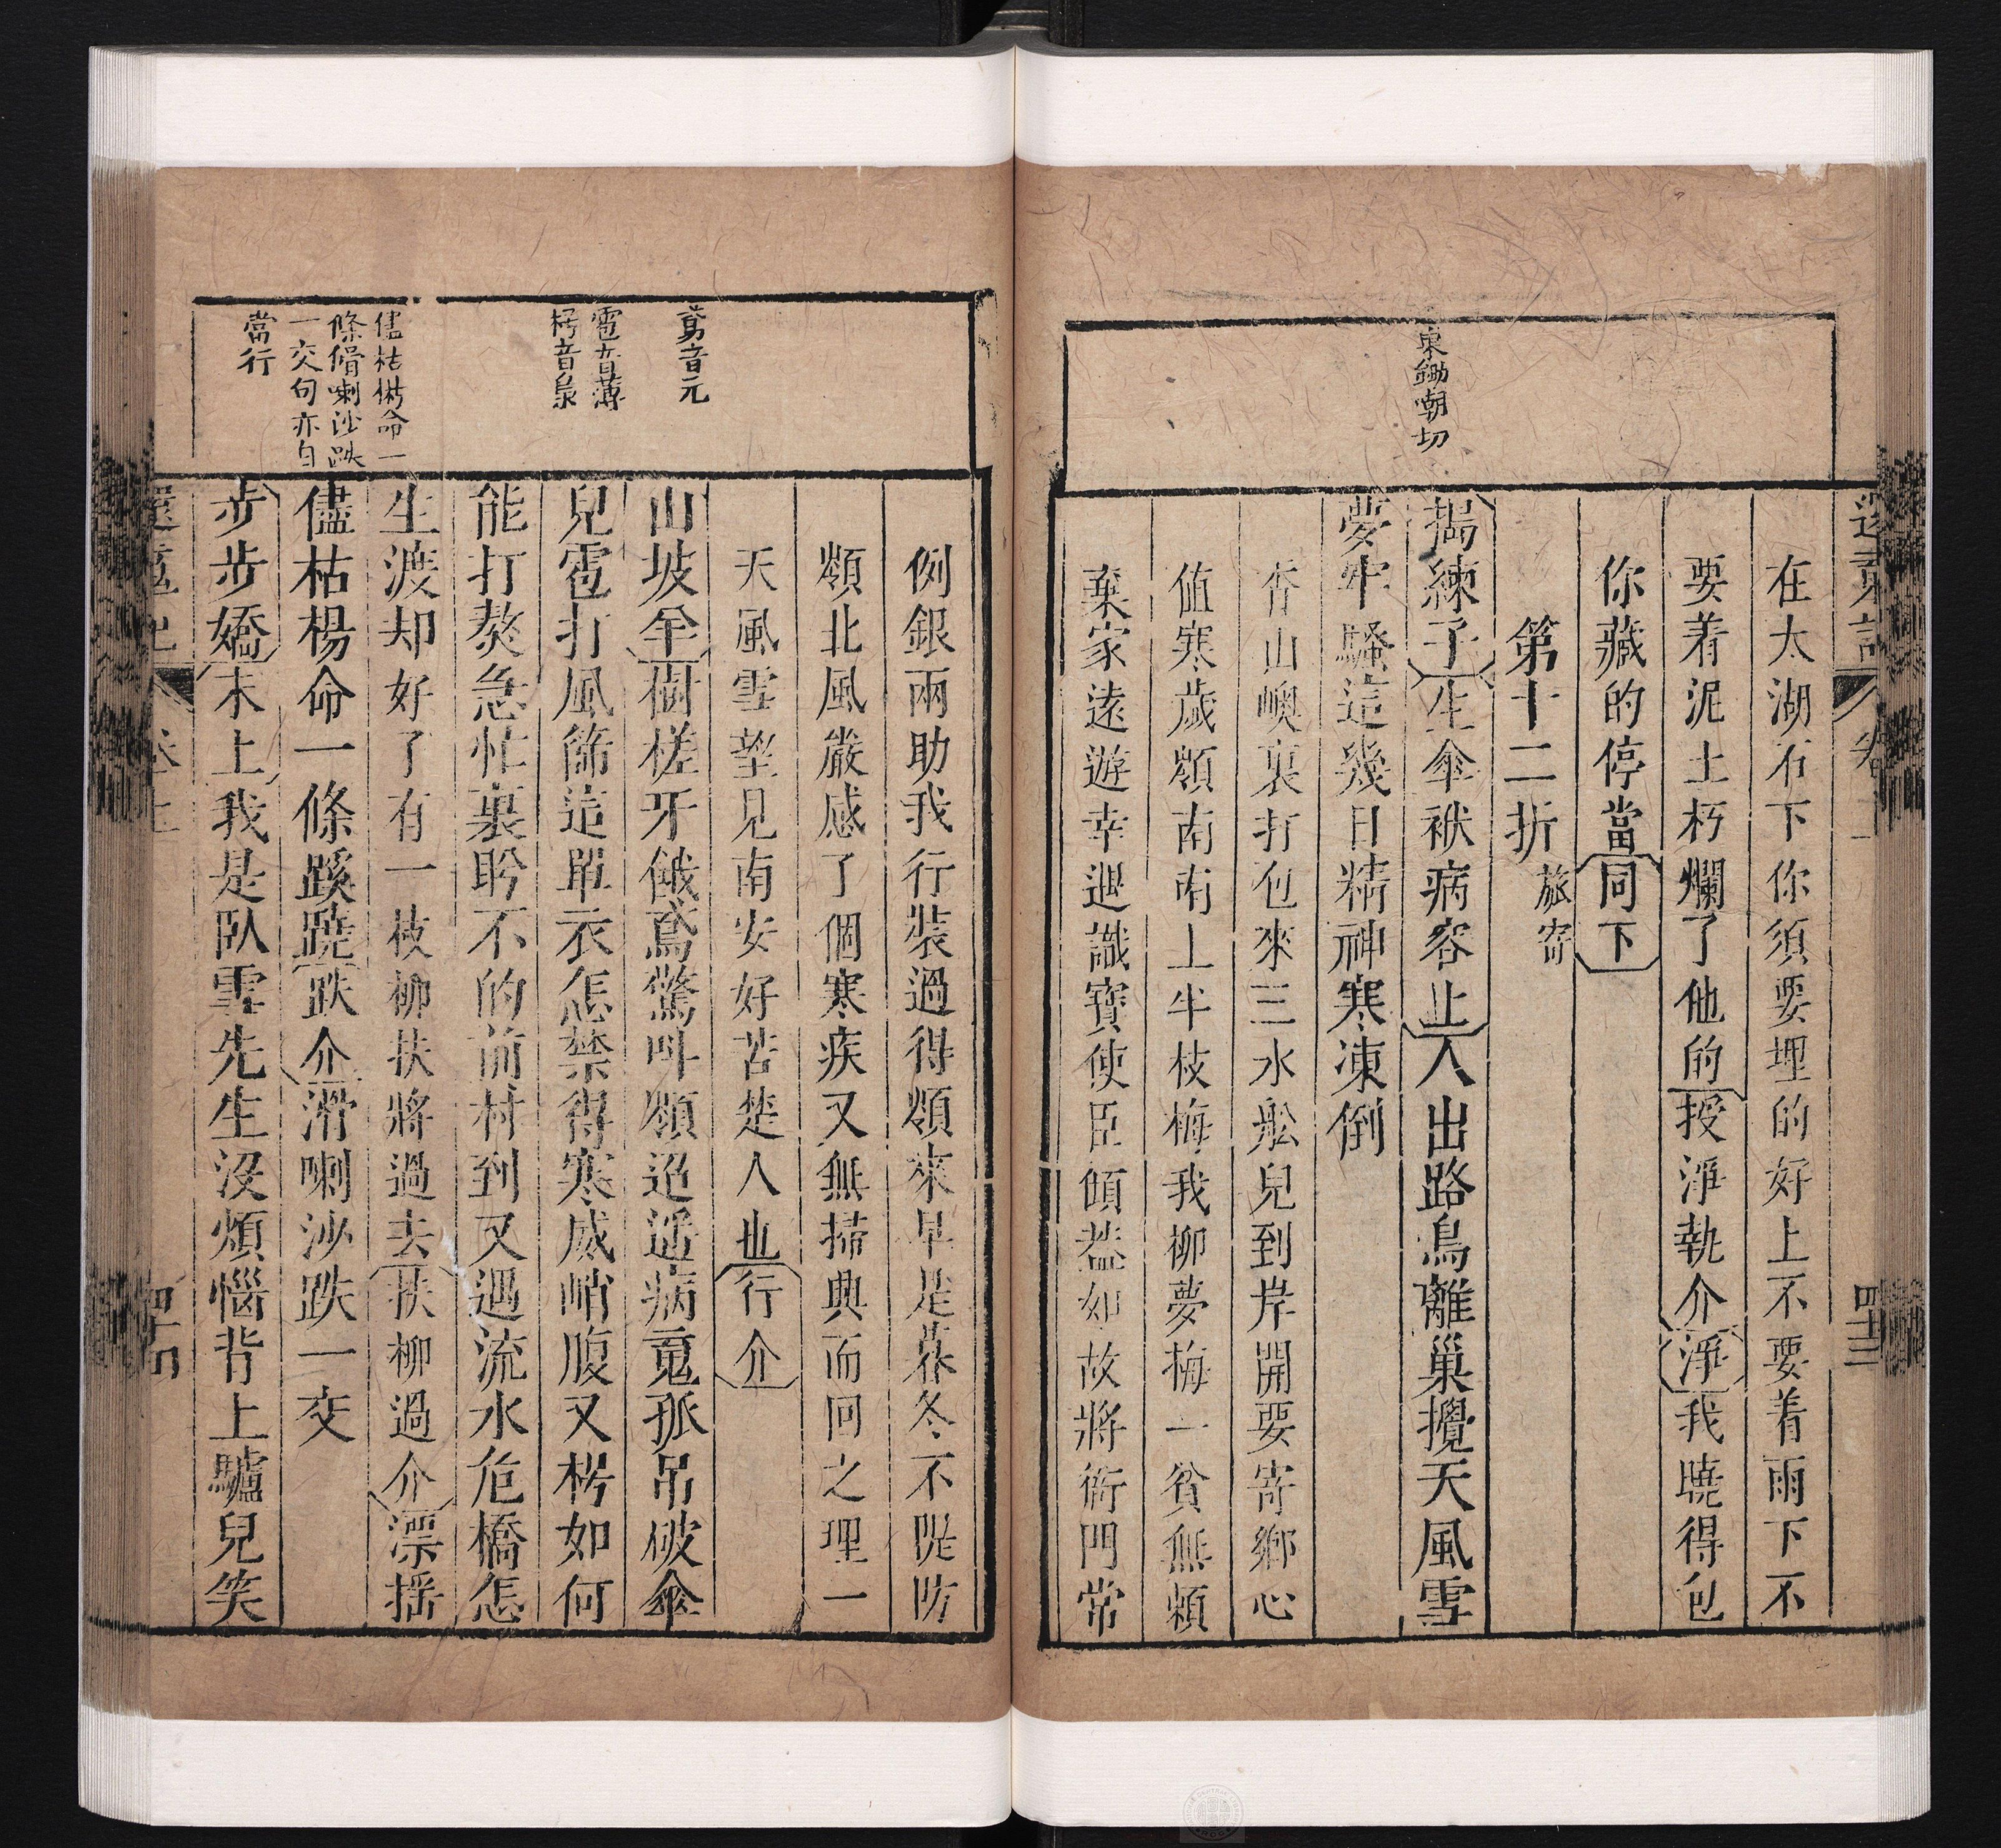 還䰟記
卷上
四十三
巢鋤嘲切
在太湖石下你須要埋的好上不要着雨下不
要着泥土朽爛了他的授淨執介淨我曉得包
你藏的停當同下
第十二折旅寄
搗練子生傘袱病容止人出路鳥離巢攪天風雪
夢牢騷這幾日精神寒凍倒
香山嶴裏打包來三水舩兒到岸開要寄鄉心
值寒歲嶺南南上半枝梅我柳夢梅一貧無頼
棄家遠遊幸遇識寶使臣傾葢如故將衙門常
鳶音元
雹音薄
枵音梟
儘枯楊命一
條滑喇沙跌
一交句亦自
當行
例銀兩助我行裝過得嶺來早是暮冬不隄防
嶺北風嚴感了個寒疾又無掃興而回之理一
天風雪望見南安好苦楚人也行介
山坡羊樹槎牙餓鳶驚呌嶺迢遥病䰟孤吊破傘
兒雹打風篩這單衣怎禁得寒威峭腹又枵如何
能打熬急忙裏盻不的前村到又遇流水危橋怎
生渡却好了有一枝柳扶將過去扶柳過介漂揺
儘枯楊命一條蹊蹺跌介滑喇沙跌一交
步步嬌末上我是臥雪先生沒煩惱背上驢兒笑
還䰟記
卷上
四十四